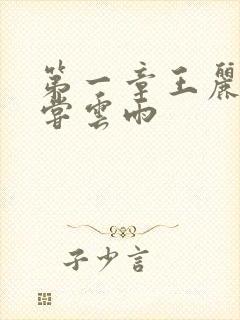 第一章王麗
嘗雲雨
子少言